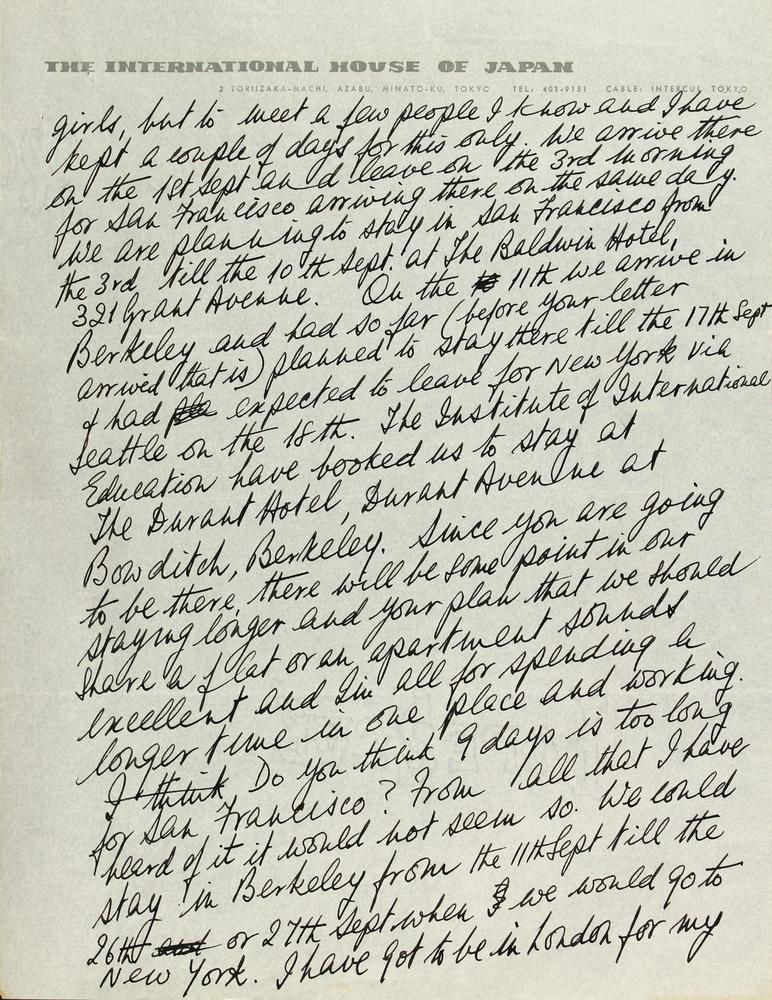 THE INTERNATIONAL HOUSE OF JAPAN
2 TORIIZAKA-MACHI, AZABU, MINATO-KU, TOKYO TEL: 401-9151 CABLE: INTERCUL TOKYO
girls, but to meet a few people I know and I have
kept a couple of days for this only. We arrive there
on the 1st Sept and leave on the 3rd morning
for San Francisco arriving there on the same day.
We are planning to stay in San Francisco from
the 3rd till the 10th Sept. at The Baldwin Hotel,
321 Grant Avenue. On the 11th we arrive in
Berkeley and had so far (before your letter
arrived that is) planned to stay there till the 17th Sept
& had expected to leave for New York via
Seattle on the 18th. The Institute of International
Education have booked us to stay at
The Durant Hotel, Durant Avenue at
Bowditch, Berkeley. Since you are going
to be there, there will be some point in our
staying longer and your plan that we should
share a flat or an apartment sounds
excellent and I'm all for spending a
longer time in one place and working.
I think Do you think 9 days is too long
for San Francisco? From all that I have
heard of it it would not seem so. We could
stay in Berkeley from the 11th Sept till the
26th and or 27th Sept when we would go to
New York. I have got to be in London for my